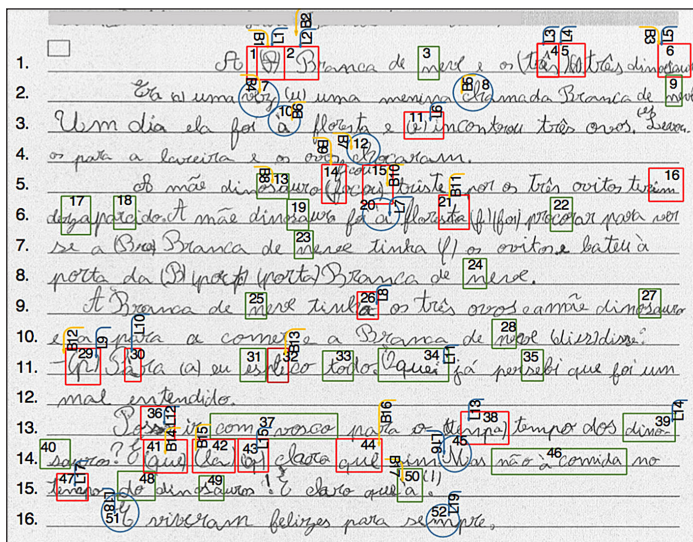 1. A (A) Branca de neve e os (três) (l) três dinosauros
2. Era (s) uma vez (u) uma menina chamada Branca de neve
3. Um dia ela foi à floresta e (e) incontrou três ovos. Levou-
4. os para a lareira e os ovos chocaram.
5. A mãe dinosauro (ficou) triste por os três ovitos terim
6. A mãe dinosaura foi floresta (f) (foi) procorar para ver
7. se a (Bra) Branca de neve tinha (f) os ovitos e bateu à
8. porta da (B) (porta) Branca de neve.
9. A Branca de neve tinha os três ovos e a mãe dinosauro
10. para a comer e a Branca de neve (diss) disse:
11. (p) Para (a) eu esplico todo. O quei já persebi que foi um
12. mal entendido.
13. Posso ir com vosco para o (tempa) tempo dos dino-
14. sauros? E (que) (la) (o) claro que sim. Mas não à comida no
15. tempo do dinosauros! E claro que à (l)
16. E viveram felizes para sempre.
1 2 3 4 5 6
7 8 9
10 11
12
13 14 15 16
17 18 19 20 21 22
23
24
25 26 27
28
29 30 31 32 33 34 35
36 37 38 39
40 41 42 43 44 45 46
47 48 49 50
51 52
B1 L1 B2 L2 L3 L4 B3 L5
B4 B5
B6 L6
B9 B7
B8 B10 B11
L7
L8
B12 L9 L10 B13
L11
L12 B16 L13 L14
B14 B15 L15 L16
L17 B17
L18 L19